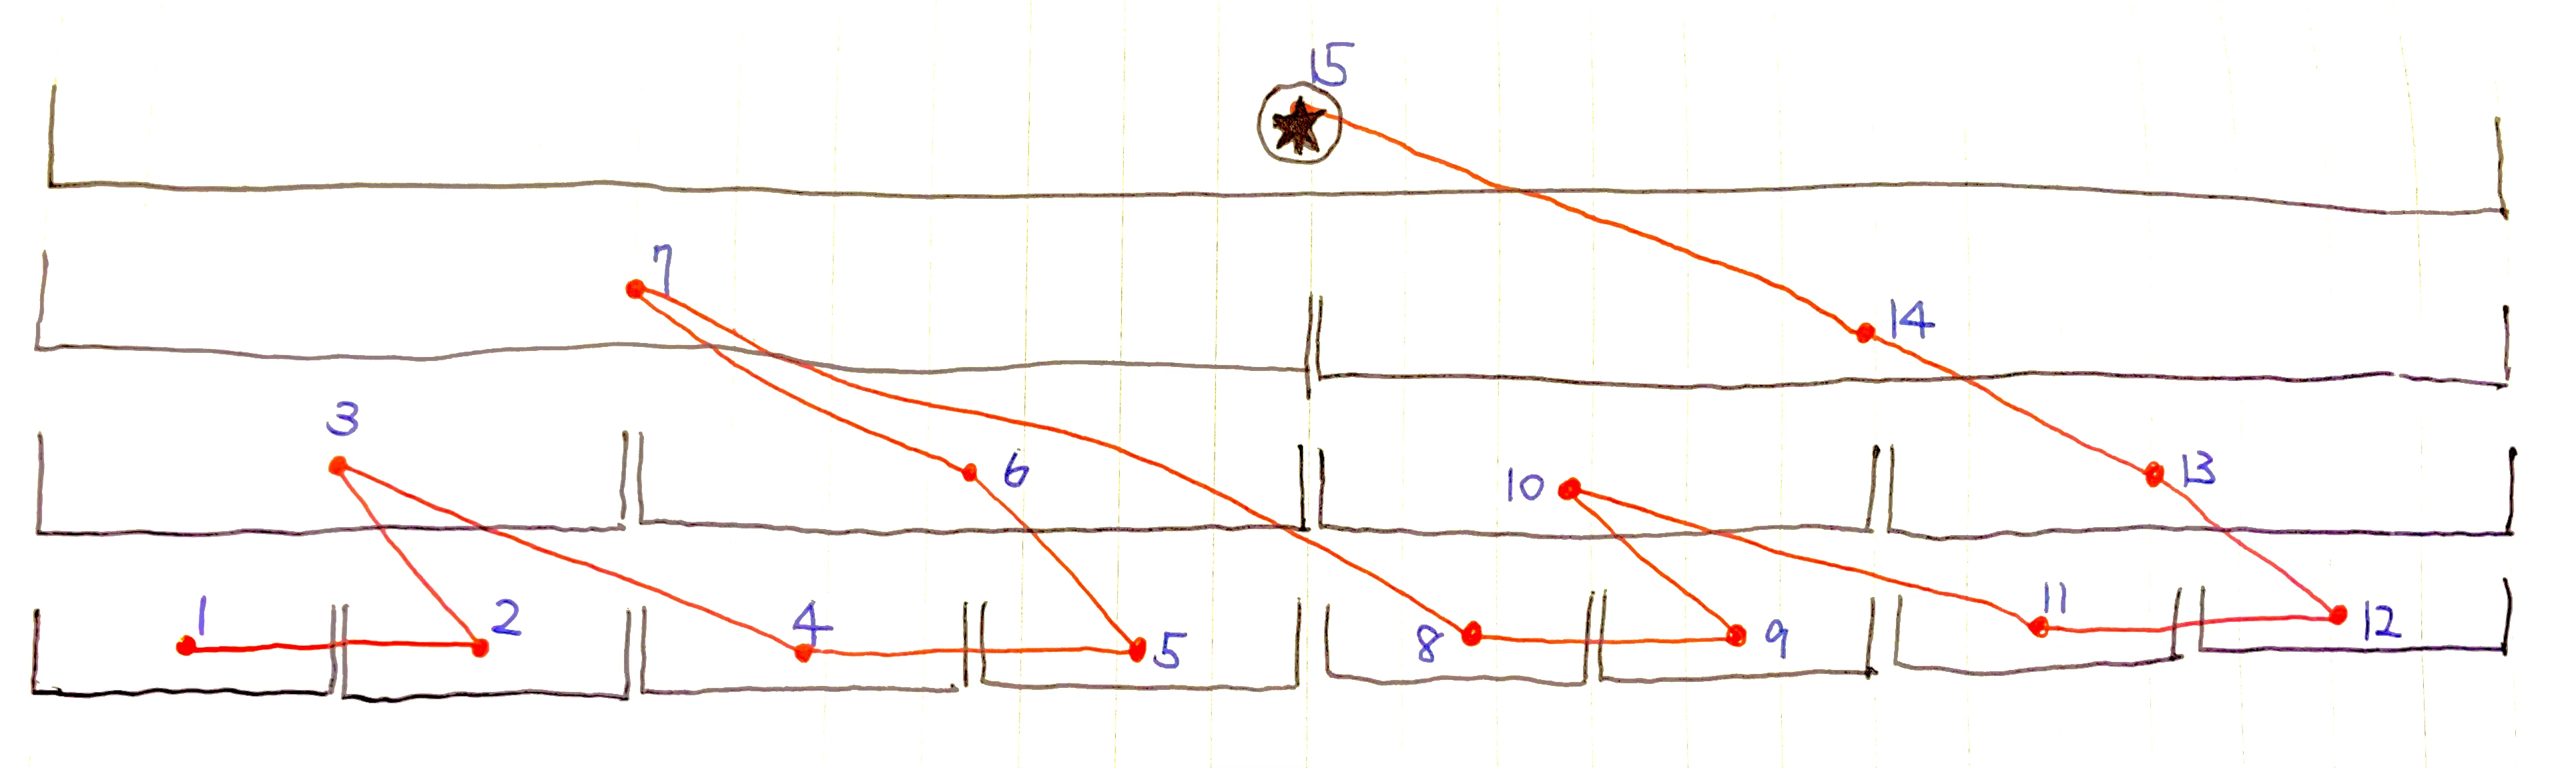 15
7
14
3
6
10
13
1
2
4
5
8
9
11
12